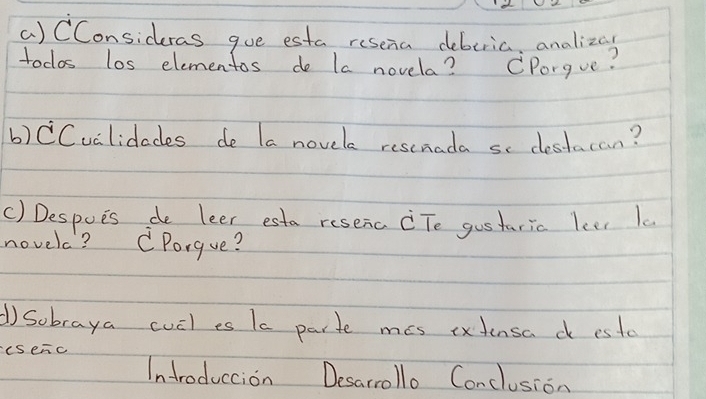 a) ¿Consideras que esta reseña debería analizar
todos los elementos de la novela? ¿Porque?
b) ¿Cuálidades de la novela reseñada se destacan?
c) Despúes de leer esta reseña ¿Te gustaría leer la
novela? ¿Porque?
d) Subraya cuál es la parte más extensa de esta
reseña
Introducción Desarrollo Conclusión